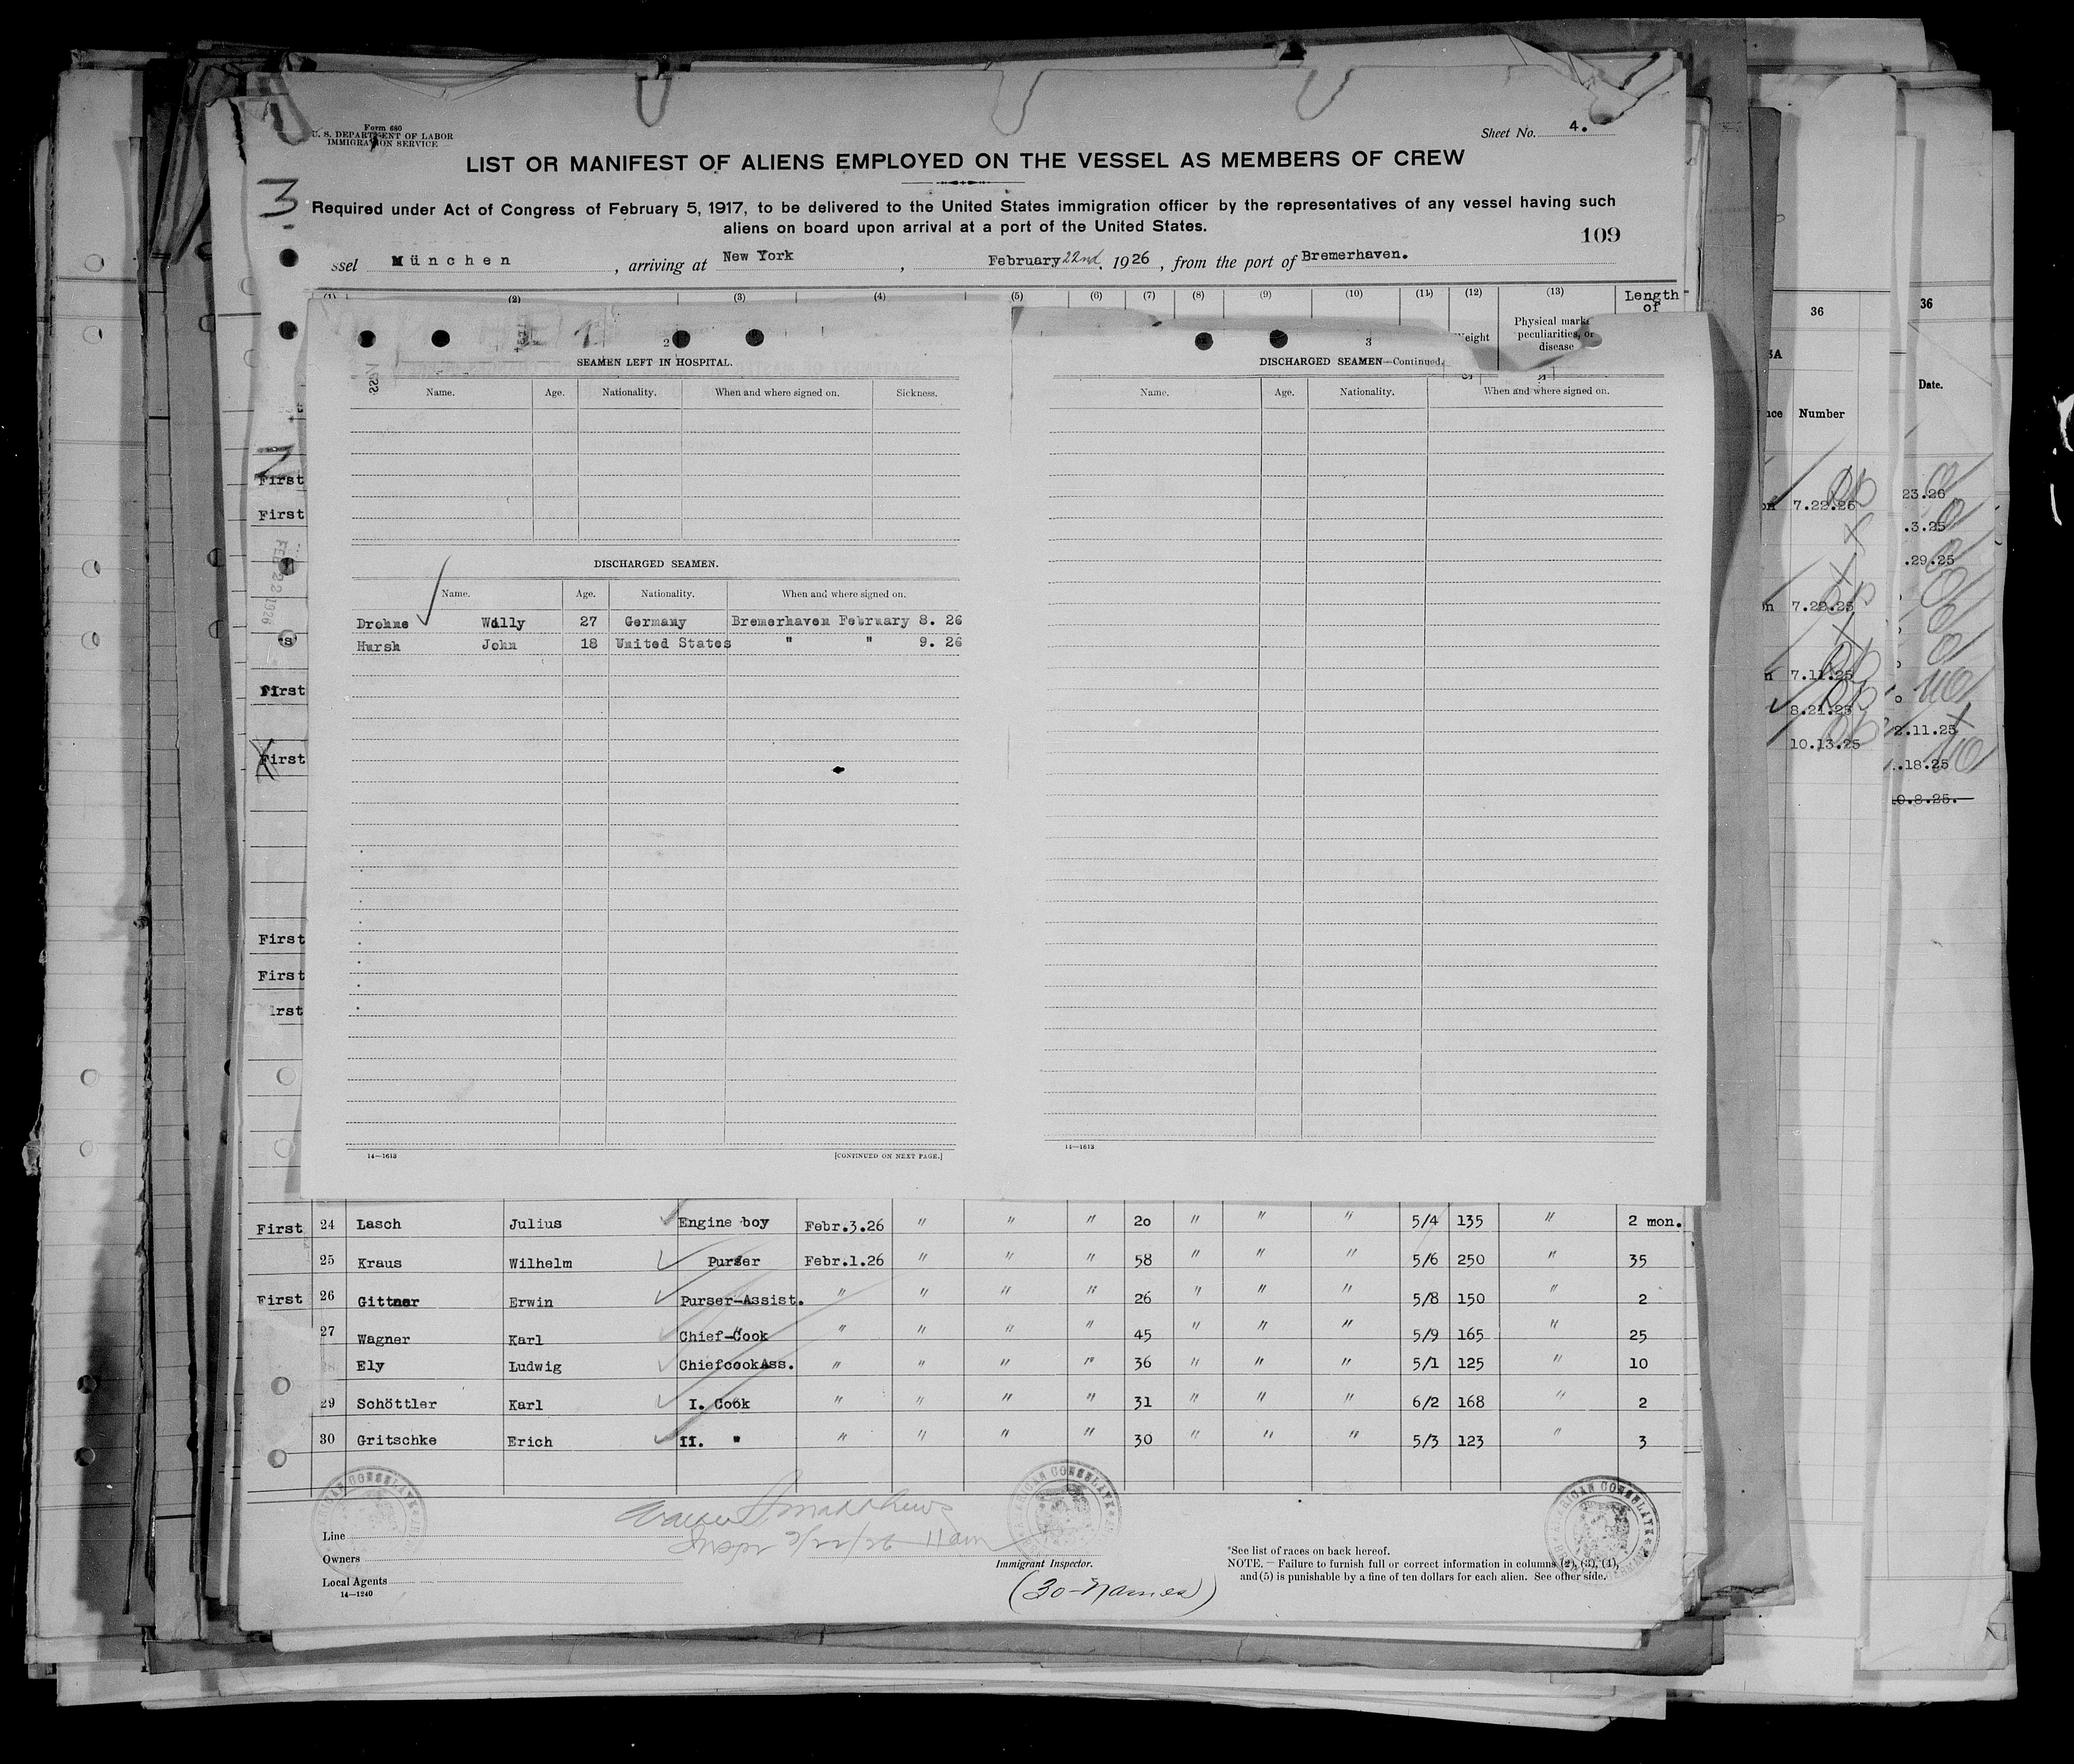 Form 680
U. S. DEPARTMENT OF LABOR
IMMIGRATION SERVICE
Sheet No. 4.
LIST OR MANIFEST OF ALIENS EMPLOYED ON THE VESSEL AS MEMBERS OF CREW
3
Required under Act of Congress of February 5, 1917, to be delivered to the United States immigration officer by the representatives of any vessel having such
aliens on board upon arrival at a port of the United States.
109
ssel München , arriving at New York , February 22nd. 1926 , from the port of Bremerhaven.
(1) (2) (3) (4) (5) (6) (7) (8) (9) (10) (11) (12) (13) Length
of
Physical marks
peculiarities, or
disease
eight
2
SEAMEN LEFT IN HOSPITAL.
Name. Age. Nationality. When and where signed on. Sickness.
DISCHARGED SEAMEN.
Name. Age. Nationality. When and where signed on.
Drohne Willy 27 Germany Bremerhaven February 8. 26
Hursh John 18 United States " " 9. 26
14—1613 [CONTINUED ON NEXT PAGE.]
3
DISCHARGED SEAMEN—Continued.
Name. Age. Nationality. When and where signed on.
14—1613
First
First
FEB 22 1926
First
First
First
First
irst
First 24 Lasch Julius Engine boy Febr.3.26 " " " 20 " " " 5/4 135 " 2 mon.
25 Kraus Wilhelm Purser Febr.1.26 " " " 58 " " " 5/6 250 " 35
First 26 Gittner Erwin Purser-Assist. " " " " 26 " " " 5/8 150 " 2
27 Wagner Karl Chief-Cook " " " " 45 " " " 5/9 165 " 25
Ely Ludwig ChiefcookAss. " " " " 36 " " " 5/1 125 " 10
29 Schöttler Karl I. Cook " " " " 31 " " " 6/2 168 " 2
30 Gritschke Erich II. " " " " " 30 " " " 5/3 123 " 3
Line
Owners
Local Agents
14—1240
Matthews
11 am
Immigrant Inspector.
(30-Names)
AMERICAN CONSULATE
*See list of races on back hereof.
NOTE.—Failure to furnish full or correct information in columns (2), (3), (4),
and (5) is punishable by a fine of ten dollars for each alien. See other side.
36
Number
7.22.25
7.22.25
7.11.25
8.21.25
10.13.25
36
Date.
23.26
.3.25
.29.25
2.11.25
.18.25
0.8.25.